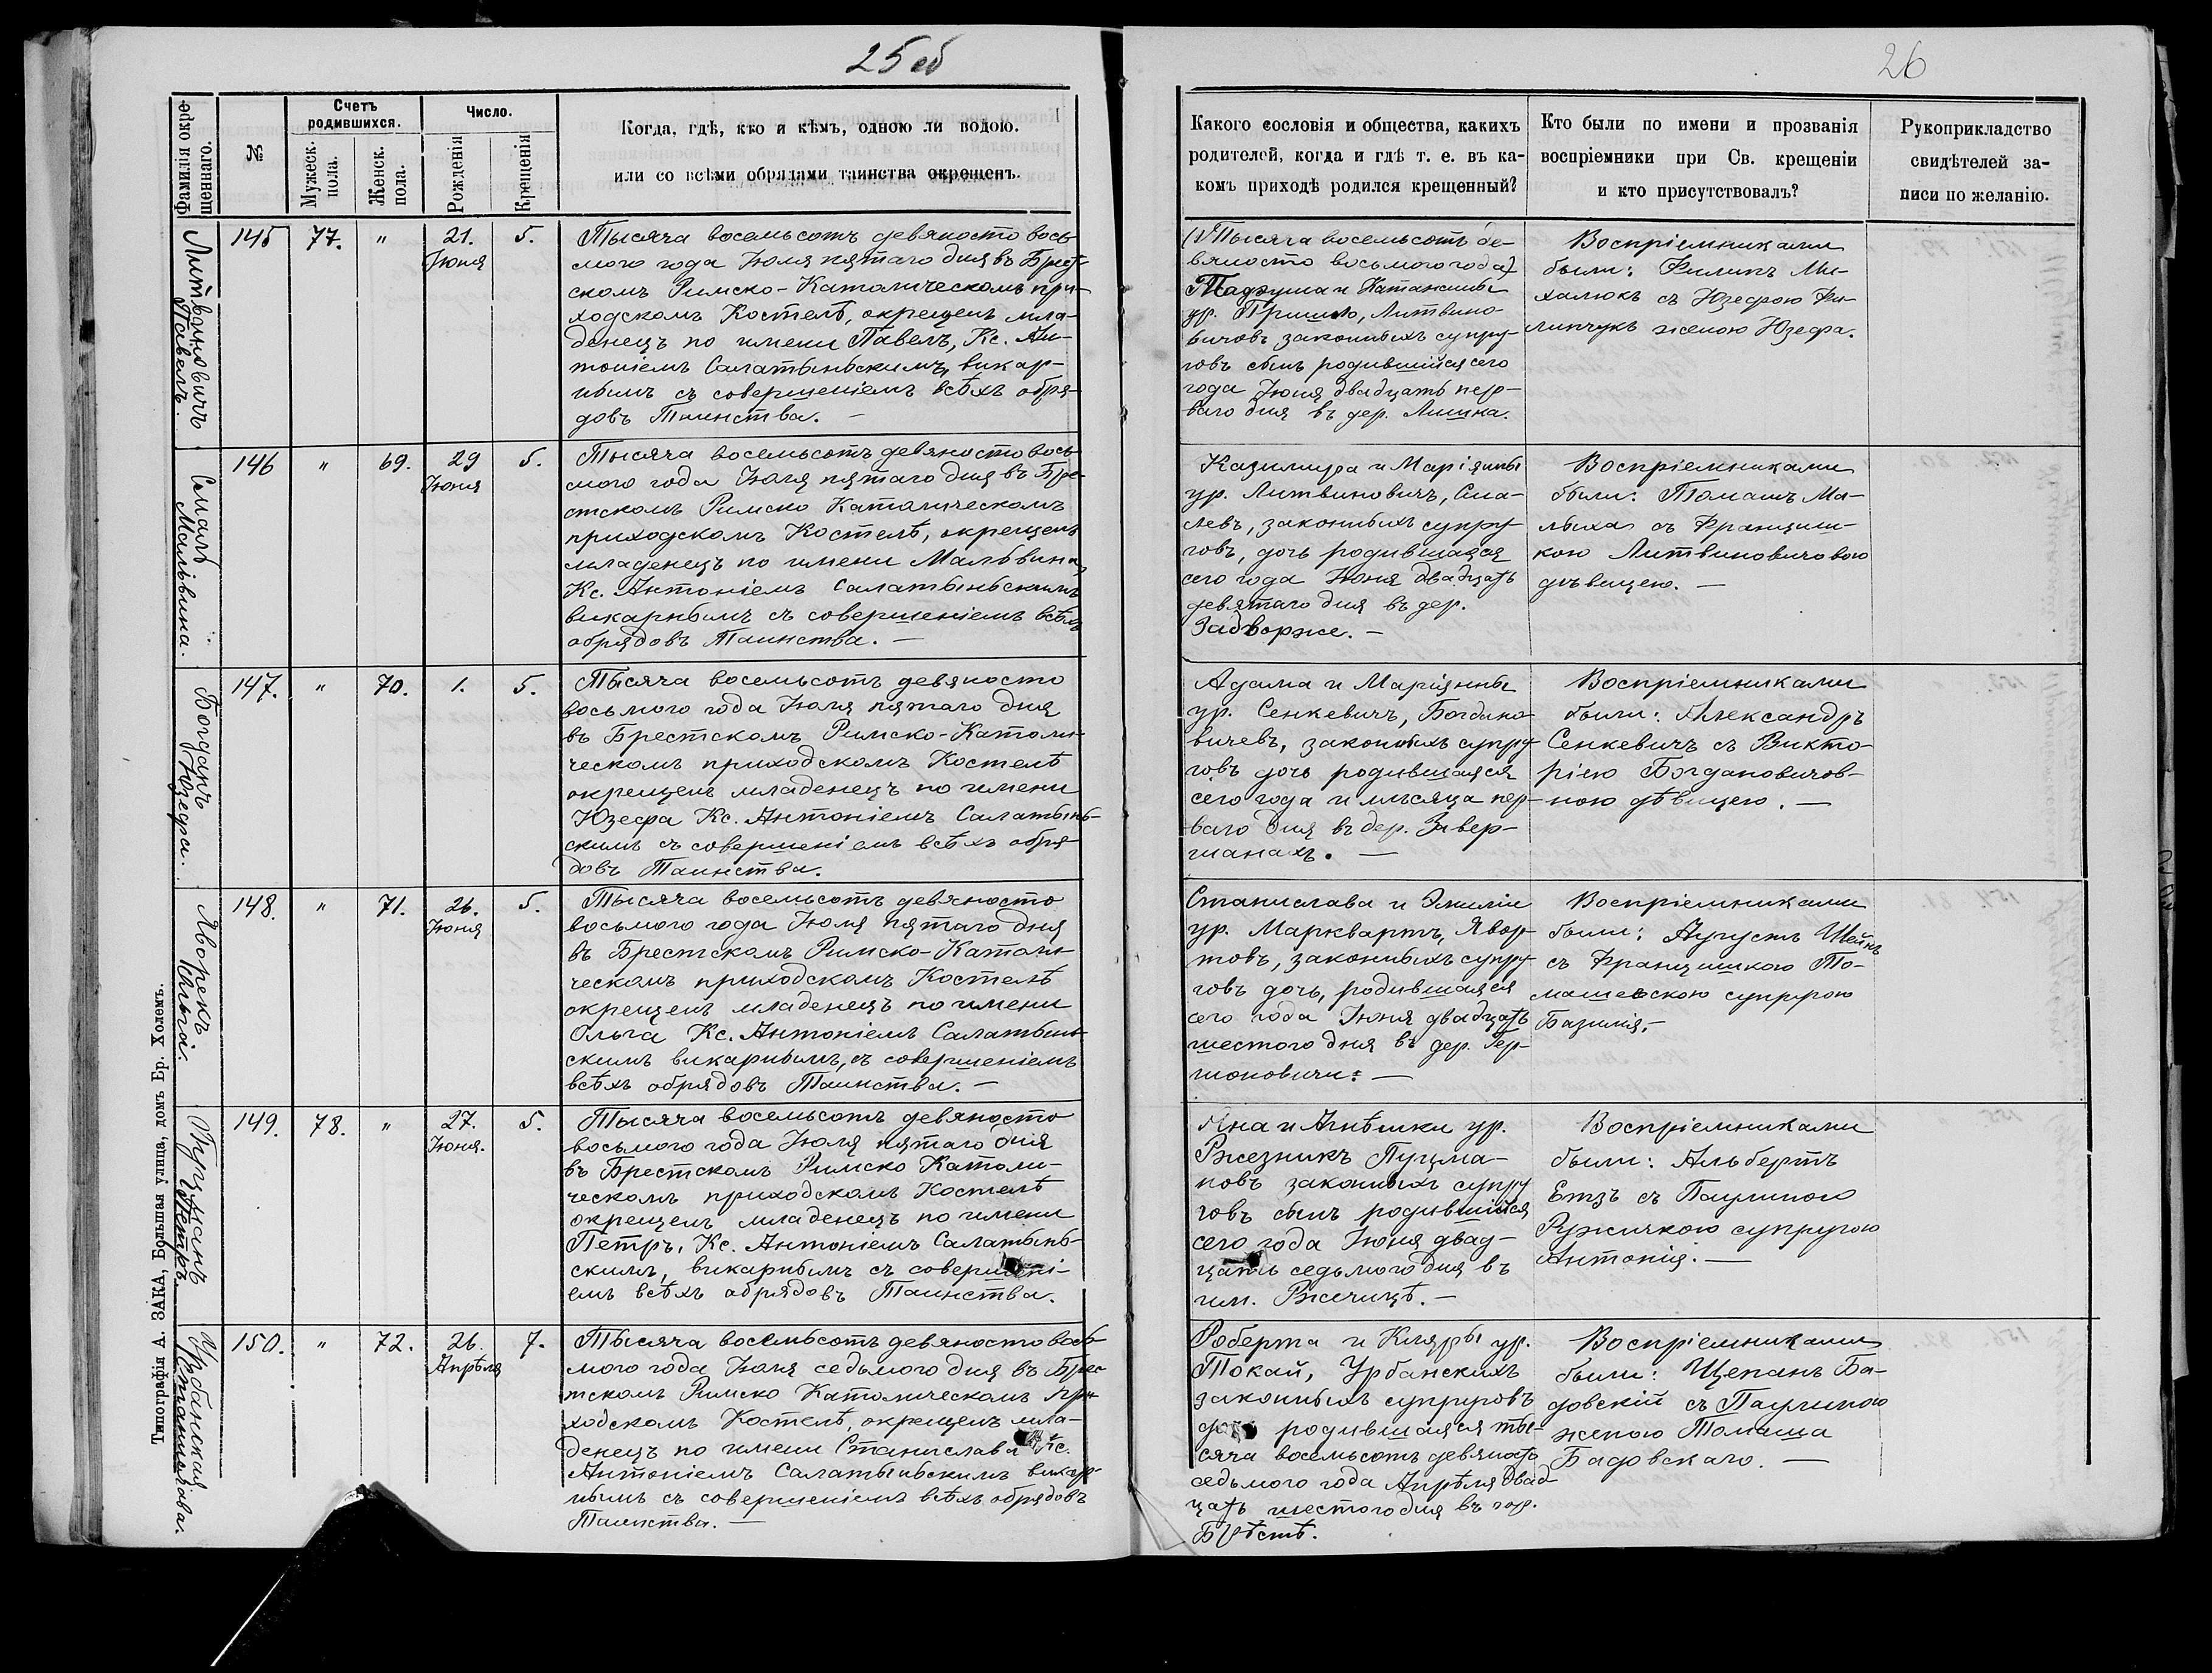 25 об
Фамилія окре-
щеннаго.
№
Счетъ
родившихся.
Мужеск.
пола.
Женск.
пола.
Число.
Рожденія
Крещенія
Когда, гдѣ, кто и кѣмъ, одною ли водою.
или со всѣми обрядами таинства окрещенъ.
Литвановичъ
Павелъ.
145
77.
"
21.
Іюня
5.
Тысяча восемьсотъ девяносто вось-
мого года Іюля пятаго дня въ Брест-
скомъ Римско-Католическомъ при-
ходскомъ Костелѣ, окрещенъ мла-
денецъ по имени Павелъ, Кс. Ан-
тоніемъ Салатыньскимъ, викар-
нымъ съ совершеніемъ всѣхъ обря-
довъ Таинства. —
Смаль
Мальвина.
146
"
69.
29
Іюня
5.
Тысяча восемьсотъ девяносто вось-
мого года Іюля пятаго дня въ Бре-
стскомъ Римско Католическомъ
приходскомъ Костелѣ, окрещенъ
младенецъ по имени Мальвина,
Кс. Антоніемъ Салатыньскимъ
викарнымъ съ совершеніемъ всѣхъ
обрядовъ Таинства. —
Богданъ
Юзефа.
147.
"
70.
1.
5.
Тысяча восемьсотъ девяносто
восьмого года Іюля пятаго дня
въ Брестскомъ Римско-Католи-
ческомъ приходскомъ Костелѣ
окрещенъ младенецъ по имени
Юзефа Кс. Антоніемъ Салатынь-
скимъ съ совершеніемъ всѣхъ обря-
довъ Таинства.
Яворекъ
Ольга.
148.
"
71.
26.
Іюня
5.
Тысяча восемьсотъ девяносто
восьмого года Іюля пятаго дня
въ Брестскомъ Римско-Католи-
ческомъ приходскомъ Костелѣ
окрещенъ младенецъ по имени
Ольга Кс. Антоніемъ Салатынь-
скимъ викарнымъ, съ совершеніемъ
всѣхъ обрядовъ Таинства. —
Пуцманъ
Петръ.
149.
78.
"
27.
Іюня.
5.
Тысяча восемьсотъ девяносто
восьмого года Іюля пятаго дня
въ Брестскомъ Римско Католи-
ческомъ приходскомъ Костелѣ
окрещенъ младенецъ по имени
Петръ, Кс. Антоніемъ Салатынь-
скимъ, викарнымъ съ совершені-
емъ всѣхъ обрядовъ Таинства.
Урбанская
Станислава.
150.
"
72.
26.
Апрѣля
7.
Тысяча восемьсотъ девяносто вось-
мого года Іюля седьмого дня въ Брес-
тскомъ Римско Католическомъ При-
ходскомъ Костелѣ, окрещенъ мла-
денецъ по имени Станислава Кс.
Антоніемъ Салатыньскимъ викар-
нымъ съ совершеніемъ всѣхъ обрядовъ
Таинства. —
Типографія А. ЗАКА, Большая улица, домъ Ер. Холемъ.
26
Какого сословія и общества, какихъ
родителей, когда и гдѣ т. е. въ ка-
комъ приходѣ родился крещенный?
Кто были по имени и прозванія
воспріемники при Св. крещеніи
и кто присутствовалъ?
Рукоприкладство
свидѣтелей за-
писи по желанію.
(Тысяча восемьсотъ де-
вяносто восьмого года)
Тадеуша и
ур. Литвино-
вичовъ законныхъ супру-
говъ сынъ родившійся сего
года Іюня двадцать пер-
ваго дня въ дер. Лишна.
Воспріемниками
были: Филипъ Ми-
халюкъ съ Юзефою Фи-
липчукъ женою Юзефа.
Казимира и Маріянны
ур. Литвиновичъ, Сма-
левъ, законныхъ супру-
говъ, дочь родившаяся
сего года Іюня двадцать
девятаго дня въ дер.
Задворже. —
Воспріемниками
были: Томашъ Ма-
лыха съ Францишь-
кою Литвиновичовою
дѣвицею. —
Адама и Маріянны
ур. Сенкевичъ, Богдано-
вичевъ, законныхъ супру-
говъ дочь родившаяся
сего года и мѣсяца пер-
ваго дня въ дер. Завер-
шанахъ. —
Воспріемниками
были: Александръ
Сенкевичъ съ Викто-
ріею Богдановичов-
ною дѣвицею. —
Станислава и Эмиліи
ур. Марквартъ, Явор-
ковъ, законныхъ супру-
говъ дочь, родившаяся
сего года Іюня двадцать
шестого дня въ дер. Гер-
шоновичи. —
Воспріемниками
были: Аугустъ Шейнъ
съ Францишкою То-
машевскою супругою
Базилія. —
Яна и Агнѣшки ур.
Ржезникъ Пуцма-
новъ законныхъ супру
говъ сынъ родившійся
сего года Іюня двад-
цать седьмого дня въ
им. Ржечицѣ. —
Воспріемниками
были: Альбертъ
Етзъ съ Паулиною
Ружичкою супругою
Антонія. —
Роберта и Кляры ур.
Токай, Урбанскихъ
законныхъ супруговъ
дочь родившаяся ты-
сяча восемьсотъ девяносто
седьмого года Апрѣля двад
цать шестого дня въ гор.
Брѣстѣ.
Воспріемниками
были: Щепанъ Ба-
довскій съ Паулиною
женою Томаша
Бадовскаго. —